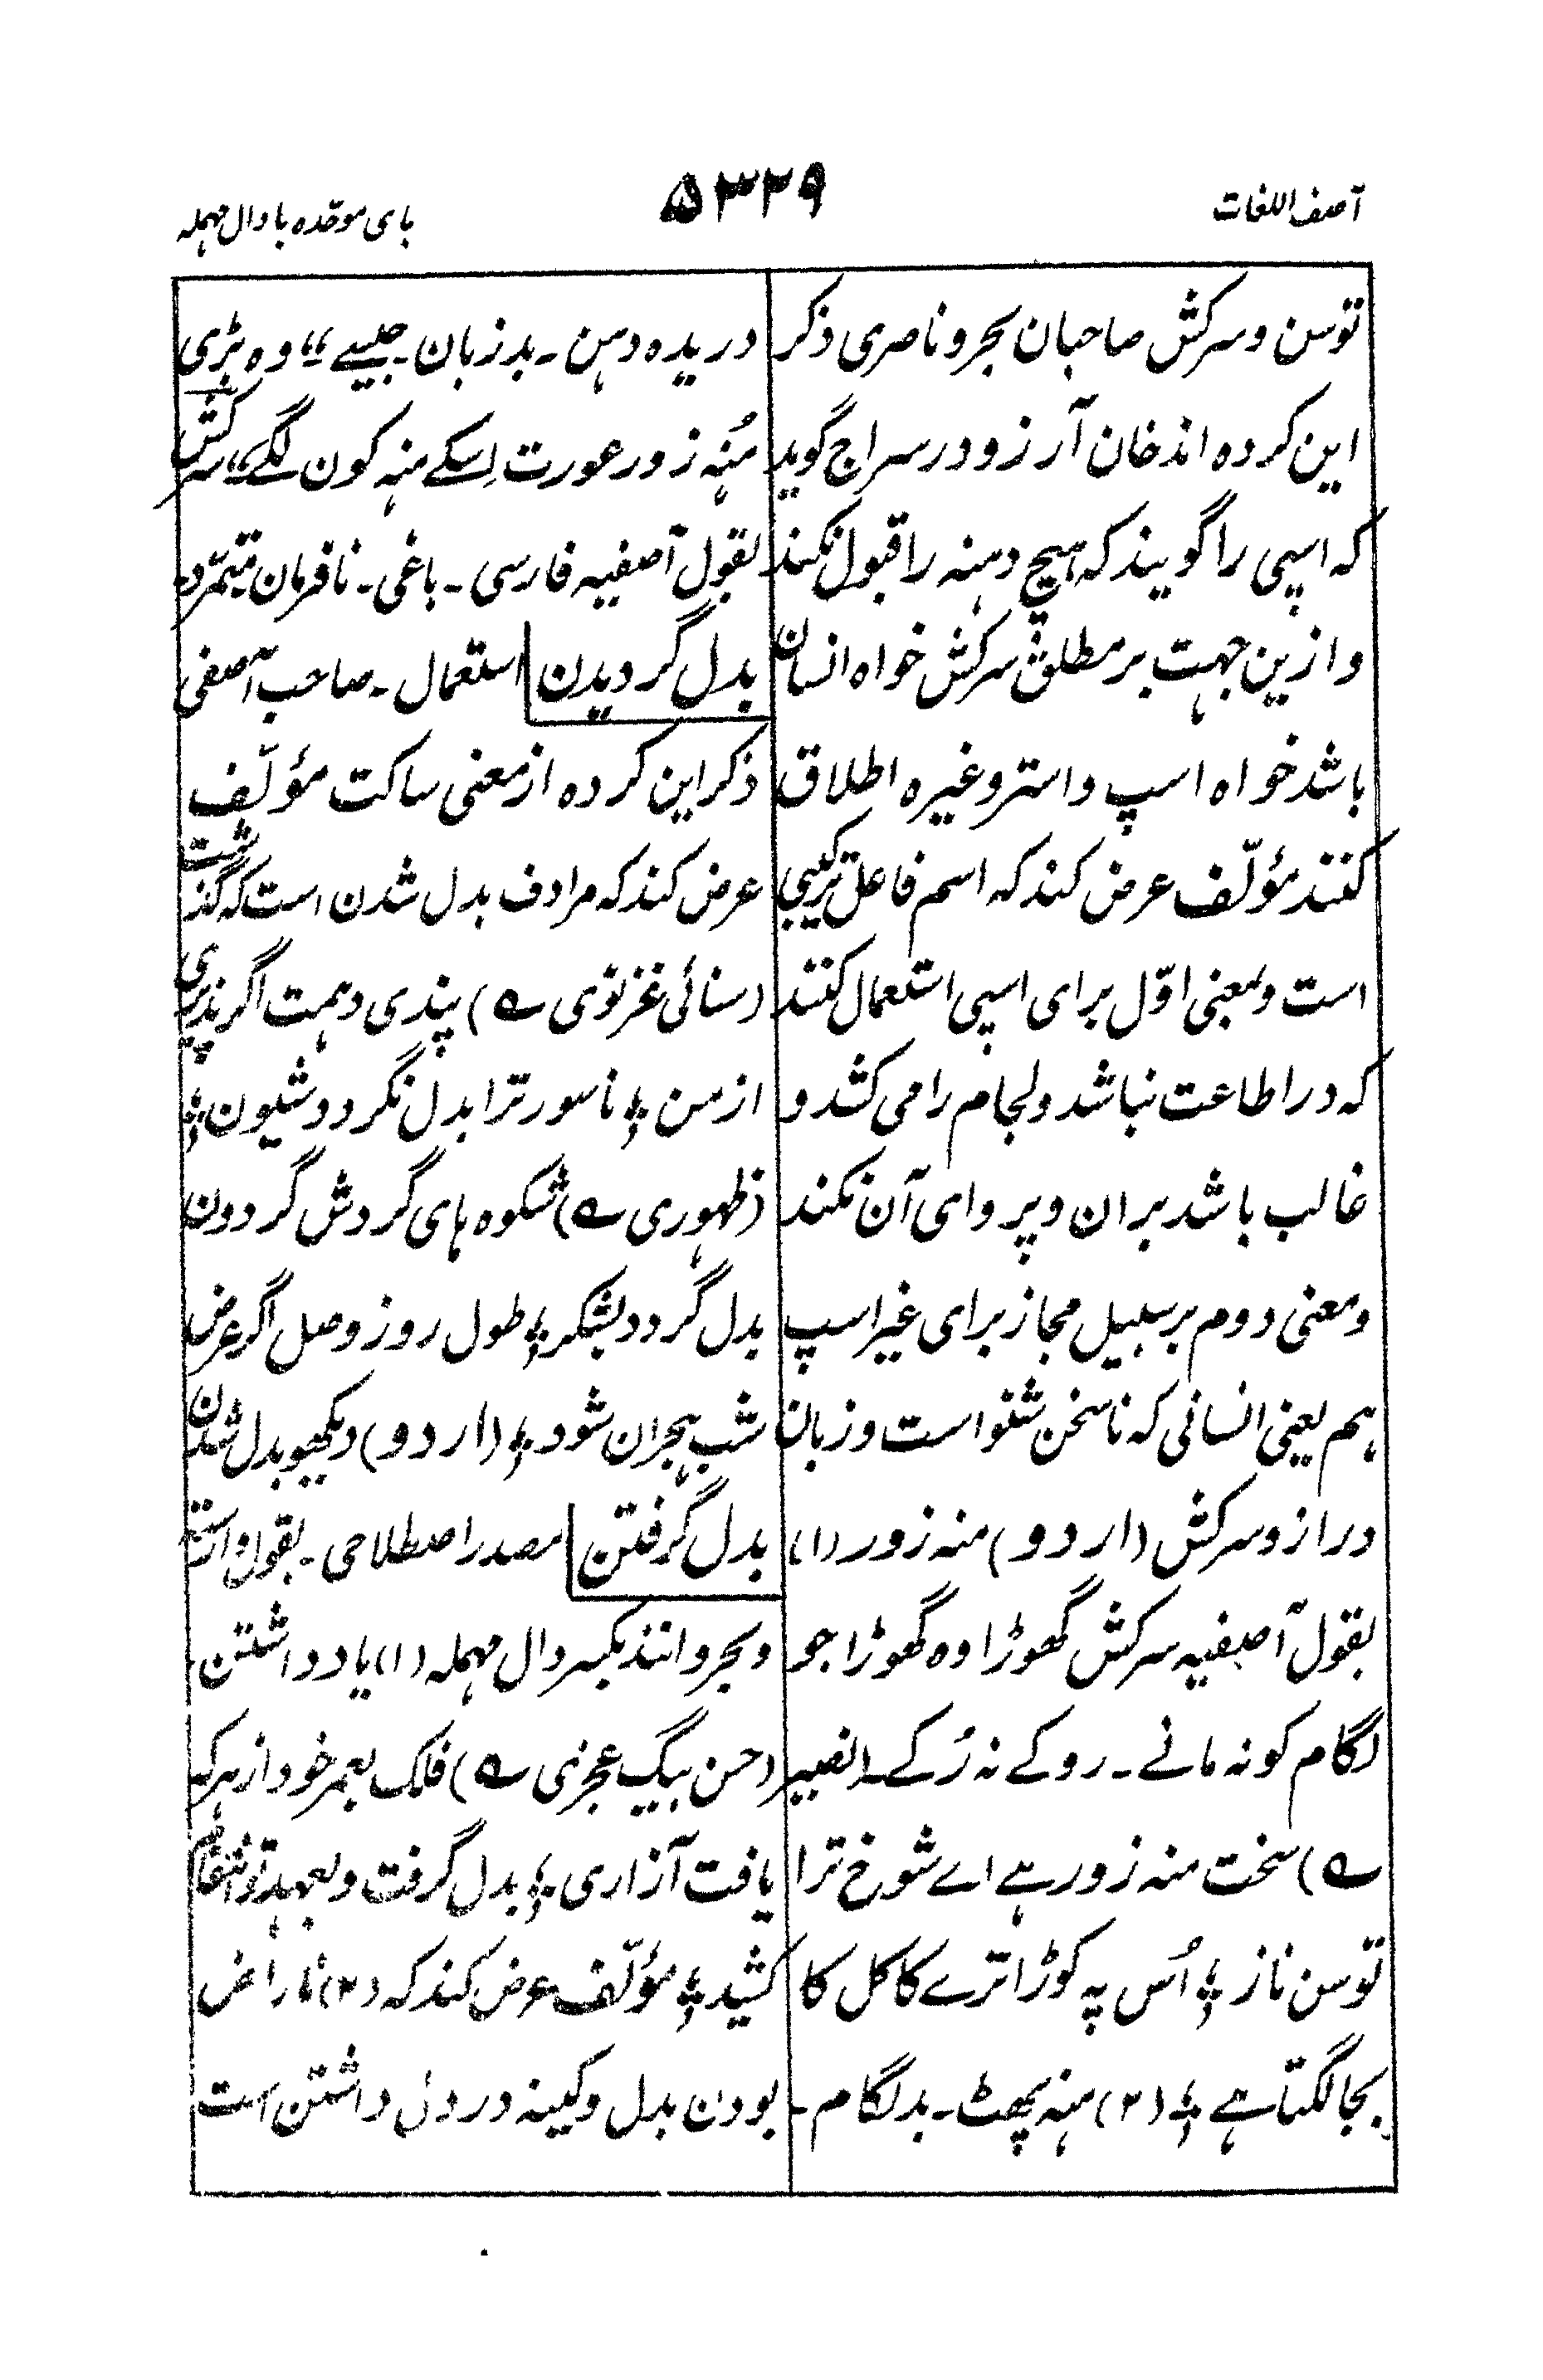 آصف اللغات
۵۳۲۹
بای موحّدہ با دال مہملہ
توسن و سرکش صاحبان بحر و ناصری ذکر
این کردہ اند خان آرزو در سراج گوید
کہ اسپی را گویند کہ ہیچ دہنہ را قبول نکند
و ازین جہت بر مطلق سرکش خواہ انسان
باشد خواہ اسپ و استر و غیرہ اطلاق
کنند مؤلّف عرض کند کہ اسم فاعل ترکیبی
است و بمعنی اوّل برای اسپی استعمال کنند
کہ در اطاعت نباشد و لجام را می کشد و
غالب باشد بران و پروای آن نکند
و معنی دوم بر سبیل مجاز برای غیر اسپ
ہم یعنی انسانی کہ ناسخن شنو است و زبان
دراز و سرکش (اردو) منہ زور (۱)
بقول آصفیہ سرکش گھوڑا وہ گھوڑا جو
لگام کو نہ مانے ۔ روکے نہ رُکے ۔ (نصیر
؎) سخت منہ زور ہے اے شوخ ترا
توسن ناز ؛ اُس پہ کوڑا ترے کاکل کا
بجا لگتا ہے ؛ (۲) منہ پھٹ ۔ بدلگام ۔
دریدہ دہن ۔ بدزبان ۔ جیسے ”وہ بڑی
مُنہ زور عورت اِسکے منہ کون لگے“ سرکش
بقول آصفیہ فارسی ۔ باغی ۔ نافرمان متمرّد
بدل گردیدن استعمال ۔ صاحب آصفی
ذکر این کردہ از معنی ساکت مؤلّف
عرض کند کہ مرادف بدل شدن است کہ گذشت
(سنائی غزنوی ؎) پندی دہمت اگر پذیری
از من ؛ ناسور ترا بدل نگردد شیون ؛
(ظہوری ؎) شکوہ ہای گردش گردون
بدل گردد بشکر ؛ طول روز وصل اگر عرض
شب ہجران شود ؛ (اردو) دیکھو بدل شدن
بدل گرفتن مصدر اصطلاحی ۔ بقول وارستہ
و بحر و انند بکسر دال مہملہ (۱) یاد داشتن ۔
(حسن بیگ عجزی ؎) فلک بعمر خود از ہر کہ
یافت آزاری ؛ بدل گرفت و بعہد تو انتقام
کشید ؛ مؤلّف عرض کند کہ (۲) ناراض
بودن بدل و کینہ در دل داشتن است